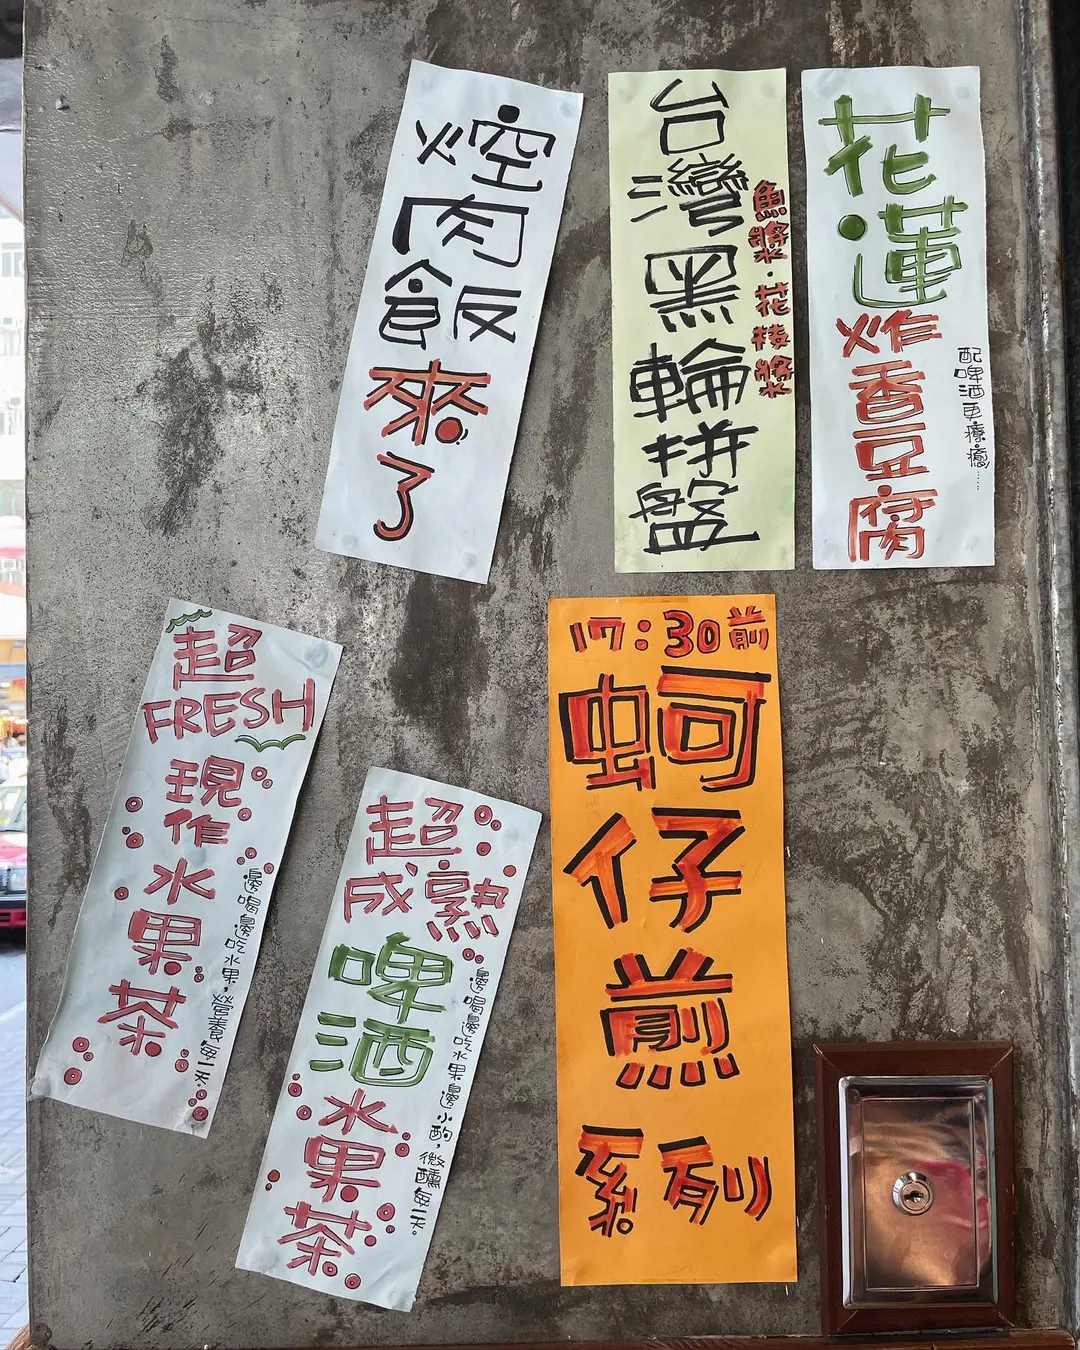 焢肉飯來了
台灣黑輪拼盤
魚漿·花枝漿
花蓮炸香豆腐
配啤酒更療癒……
超
FRESH
現作水果茶
邊喝邊吃水果,營養每一天。
超
成熟
啤酒水果茶
邊喝邊吃水果邊小酌,微醺每一天。
17:30前
蚵仔煎
系列